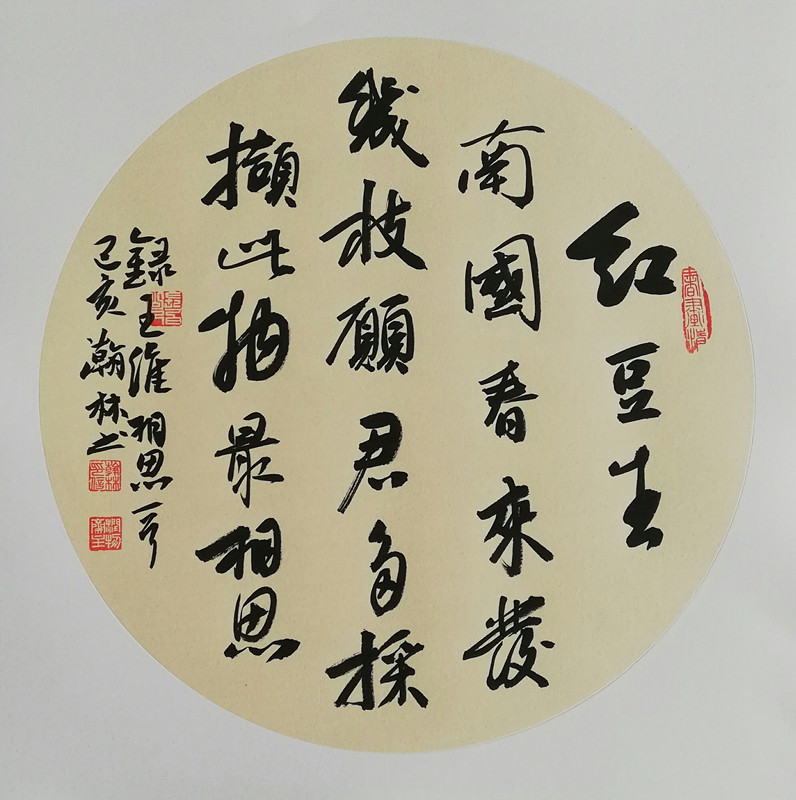 红豆生
南國春來發
幾枝願君多採
擷此物最相思
錄王維相思一首
己亥瀚林书